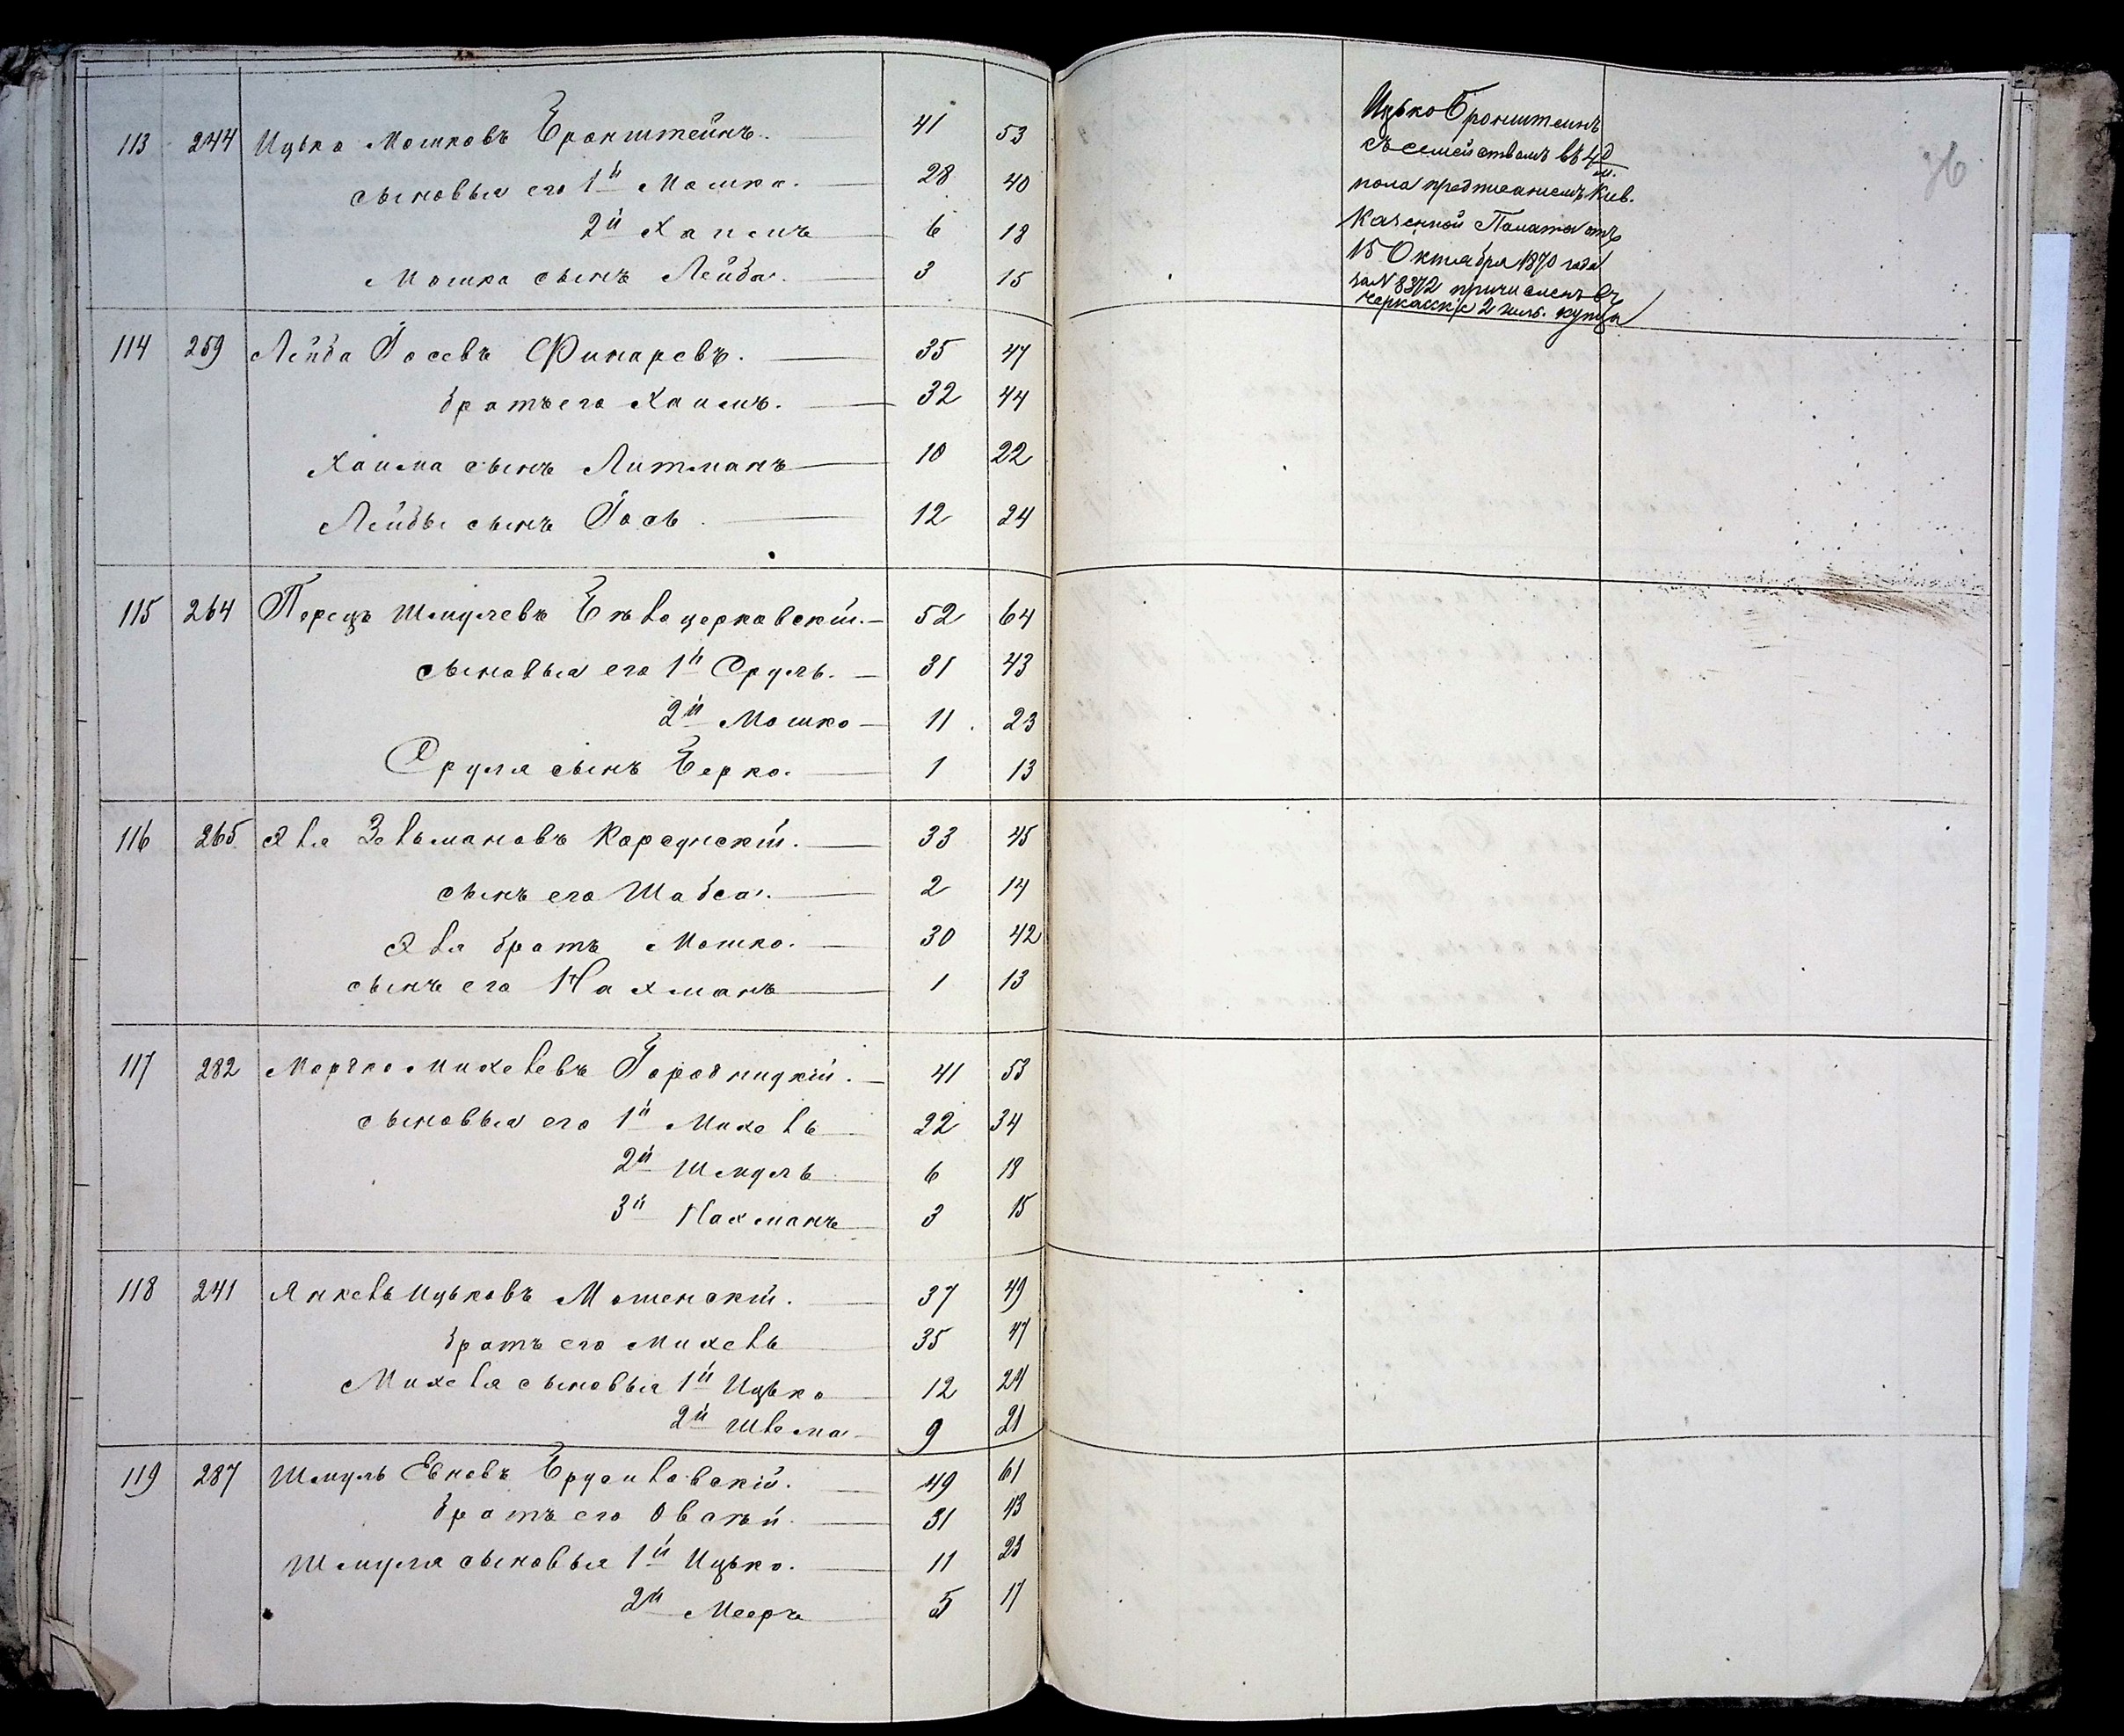 113 244 Ицько Мошковъ Бронштейнъ. 41 53
сыновья его 1й Мошко. 28 40
2й Хаимъ 6 18
Мошка сынъ Лейба. 3 15
114 259 Лейба Іосевъ Финаревъ. 35 47
братъ его Хаимъ. 32 44
Хаима сынъ Литманъ 10 22
Лейбы сынъ Іось 12 24
115 264 Перецъ Шмулевъ Бѣлоцерковскій. 52 64
сыновья его 1й Сруль. 31 43
2й Мошко 11 23
Сруля сынъ Берко. 1 13
116 265 Эля Зельмановъ 33 45
сынъ его Шабса. 2 14
Эля братъ Мошко. 30 42
сынъ его Нахманъ 1 13
117 282 Мордко Михелевъ Городницкій. 41 53
сыновья его 1й Михель 22 34
2й Шмуль 6 18
3й Нахманъ 3 15
118 241 Янкель Ицьковъ Мошенскій. 37 49
братъ его Михель 35 47
Михеля сыновья 1й Ицько 12 24
2й Шлема 9 21
119 287 Шмуль Евновъ Брусиловскій. 49 61
братъ его Овсѣй. 31 43
Шмуля сыновья 1й Ицько. 11 23
2й Мееръ 5 17
Ицько Бронштеинъ
съ семействомъ въ 4 д м.
пола предписаніемъ Кіев.
Казенной Палаты отъ
15 Октября 1870 года
за N 8372 причисленъ въ
черкасскіе 2 гиль. купцы
36